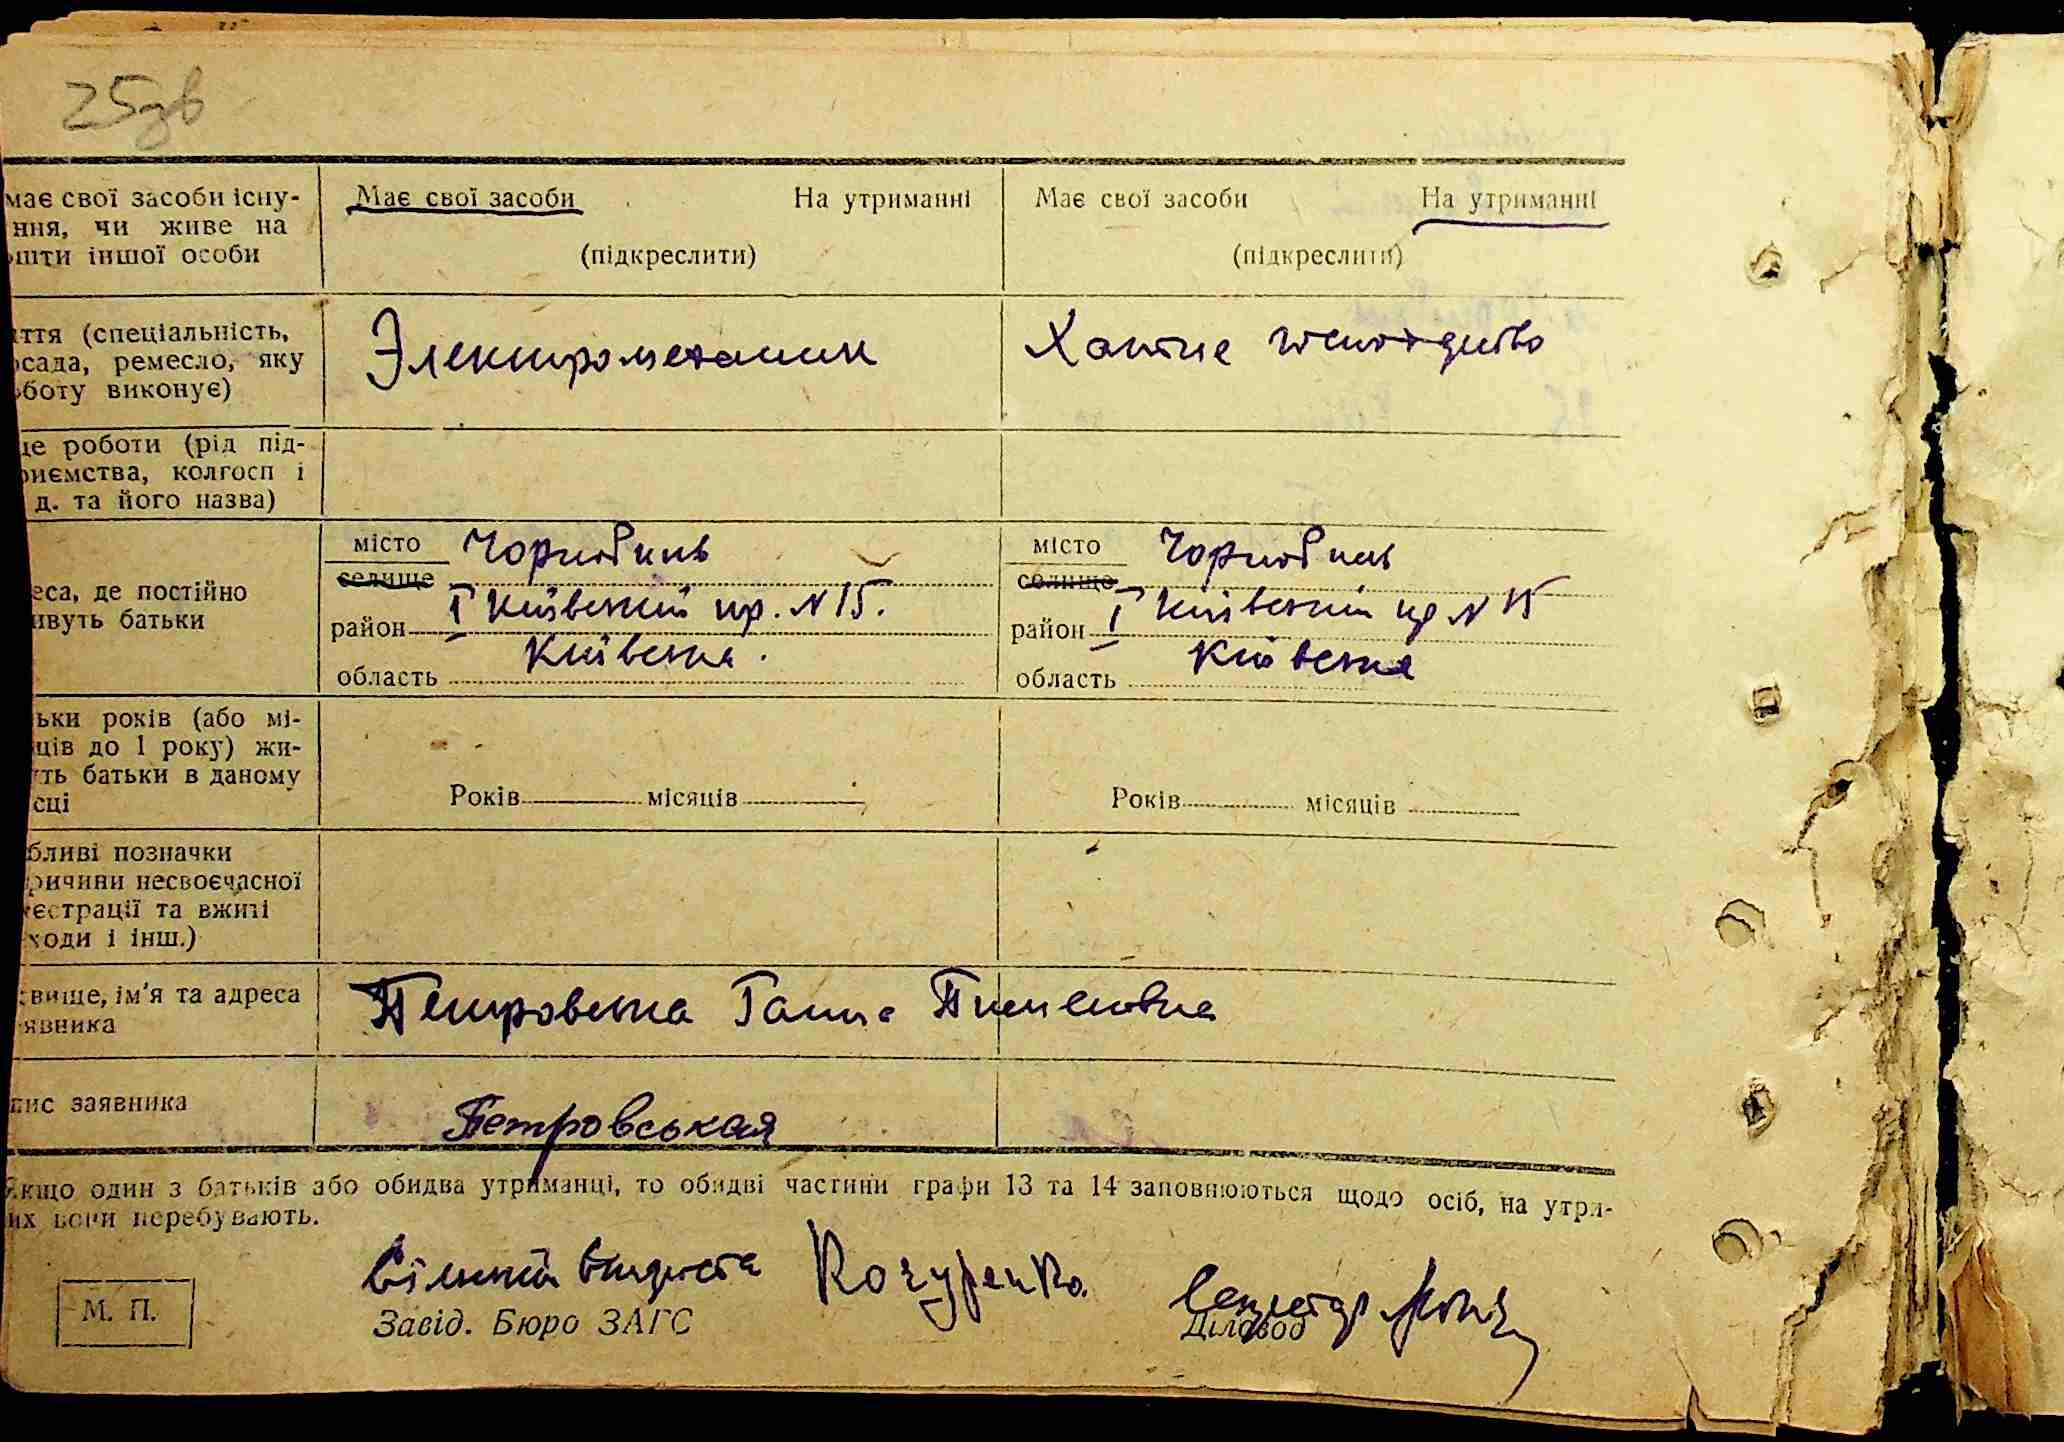 25зв
має свої засоби існу-
ння, чи живе на
шти іншої особи
Має свої засоби На утриманні
(підкреслити)
Має свої засоби На утриманні
(підкреслити)
ття (спеціальність,
осада, ремесло, яку
оботу виконує)
Электромеханик
Хатнє господдство
це роботи (рід під-
риємства, колгосп і
д. та його назва)
еса, де постійно
ивуть батьки
місто Чорнобиль
селище
район I Київський пр. N 15.
область Київська.
місто Чорнобиль
селище
район I Київський пр N 15
область Київська
ьки років (або мі-
ців до 1 року) жи-
ть батьки в даному
сці
Років місяців
Років місяців
бливі позначки
ричини несвоєчасної
єстрації та вжиті
ходи і інш.)
звище, ім'я та адреса
явника
Петровська Ганна Пименовна
пис заявника
Петровськая
Якщо один з батьків або обидва утриманці, то обидві частини графи 13 та 14 заповнюються щодо осіб, на утри-
их вони перебувають.
М. П.
Кочуренко.
Завід. Бюро ЗАГС
Секретар
Діловод